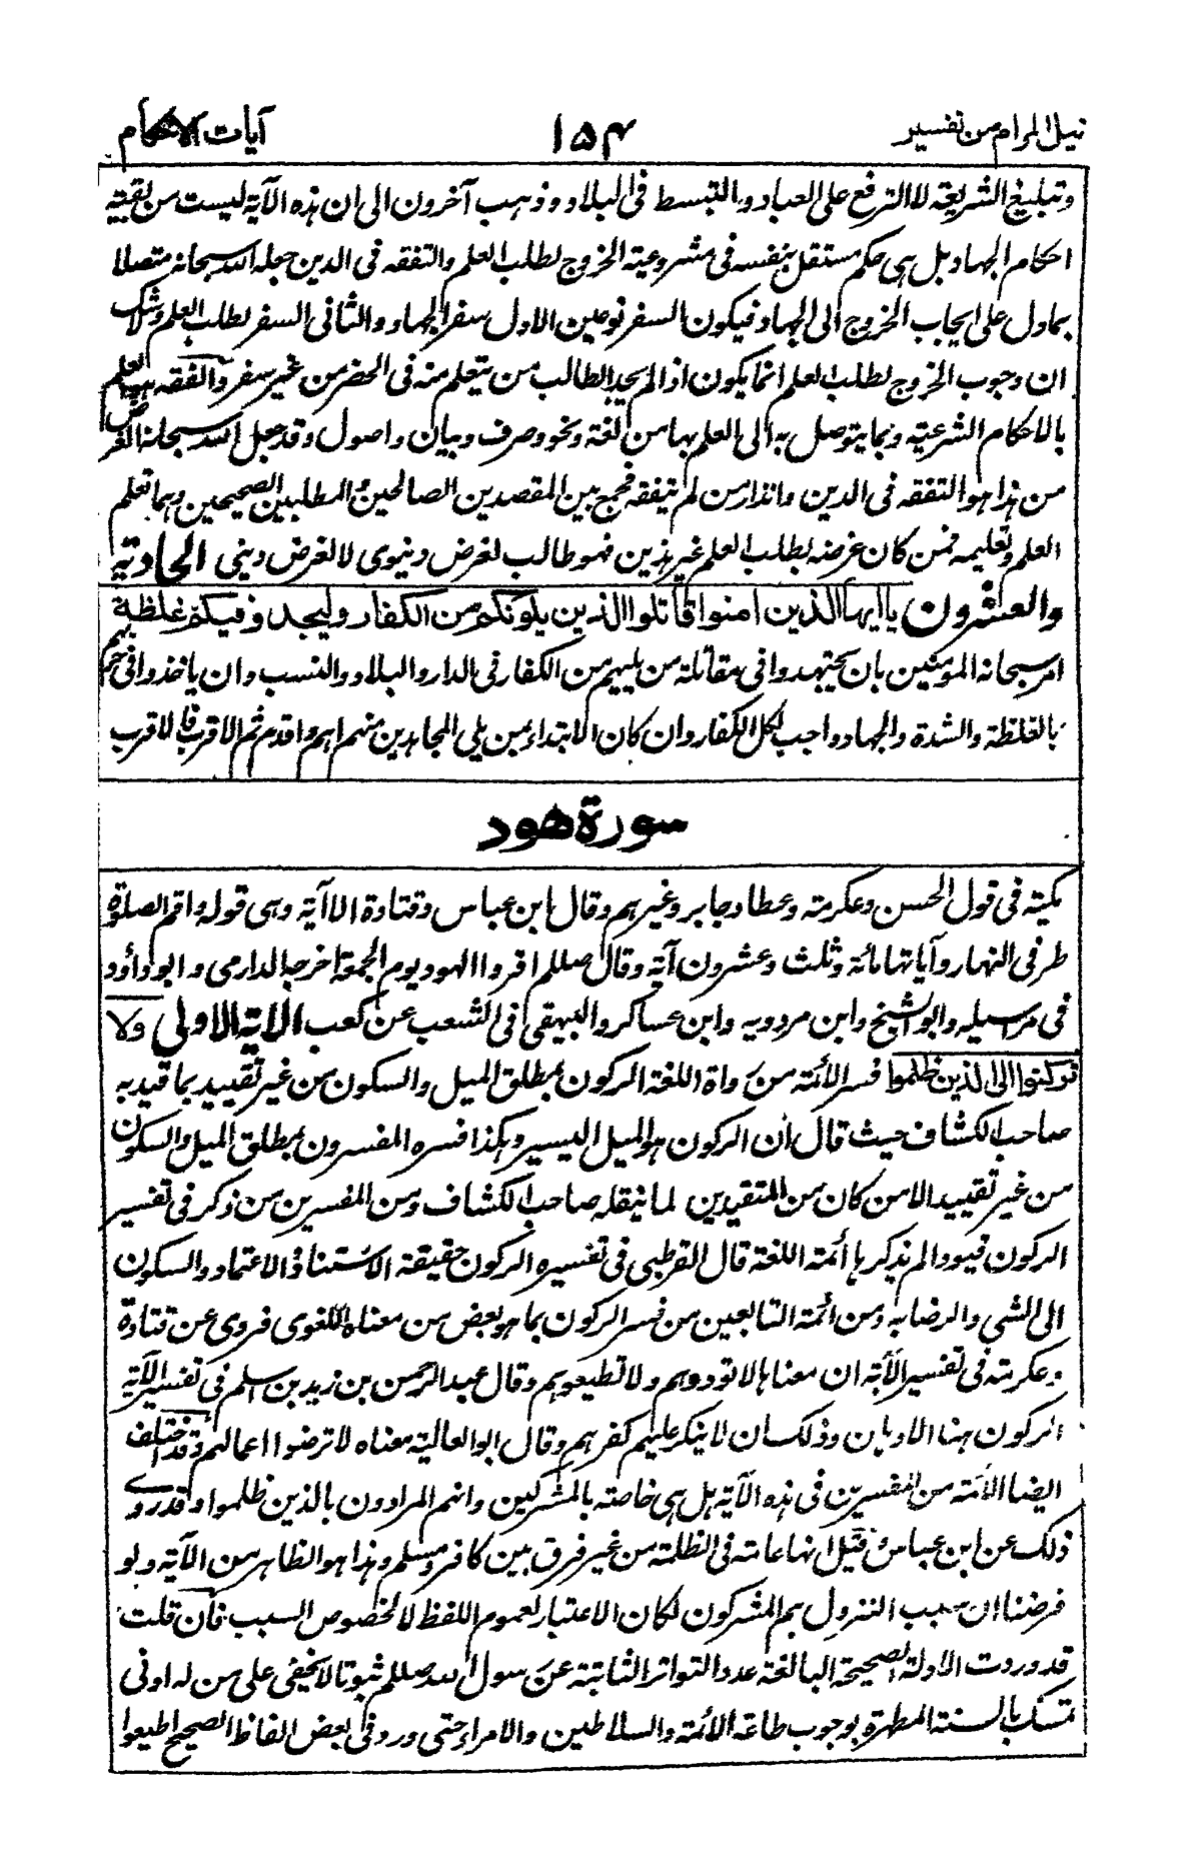 نيل المرام من تفسير
١٥٤
آيات الاحكام
وتبليغ الشريعة لا الترفع على العباد والتبسط فى البلاد وذهب آخرون الى ان هذه الآية ليست من بقية
احكام الجهاد بل هى حكم مستقل بنفسه فى مشروعية الخروج لطلب العلم والتفقه فى الدين جعله الله سبحانه متصلا
بما دل على ايجاب الخروج الى الجهاد فيكون السفر نوعين الاول سفر الجهاد والثانى السفر لطلب العلم ولا شك
ان وجوب الخروج لطلب العلم انما يكون اذا لم يجد الطالب من يتعلم منه فى الحضر من غير سفر والفقه هو العلم
بالاحكام الشرعية وبما يتوصل به الى العلم بها من لغة ونحو وصرف وبيان واصول وقد جعل الله سبحانه الغرض
من هذا هو التفقه فى الدين وانذار من لم يتفقه فجمع بين المقصدين الصالحين والمطلبين الصحيحين وهما تعلم
العلم وتعليمه فمن كان غرضه بطلب العلم غير هذين فهو طالب لغرض دنيوى لا لغرض دينى الحادية
والعشرون ياايها الذين امنوا قاتلوا الذين يلونكم من الكفار وليجدوا فيكم غلظة
امر سبحانه المؤمنين بان يجتهدوا فى مقاتلة من يليهم من الكفار فى الدار والبلاد والنسب وان ياخذوا فى حربهم
بالغلظة والشدة والجهاد واجب لكل الكفار وان كان الابتداء بمن يلى المجاهدين منهم اهم واقدم ثم الاقرب فالاقرب
سورة هود
مكية فى قول الحسن وعكرمة وعطا وجابر وغيرهم وقال ابن عباس وقتادة الا آية وهى قوله واقم الصلوة
طرفى النهار وآياتها مائة وثلث وعشرون آية وقال صللم اقروا الهود يوم الجمعة اخرجه الدارمى وابو داؤد
فى مراسيله وابو الشيخ وابن مردويه وابن عساكر والبيهقى فى الشعب عن كعب الآية الاولى ولا
تركنوا الى الذين ظلموا فسر الأئمة من رواة اللغة الركون بمطلق الميل والسكون من غير تقييد بما قيده به
صاحب الكشاف حيث قال ان الركون هو الميل اليسير وهكذا فسره المفسرون بمطلق الميل والسكون
من غير تقييد الا من كان من المتقيدين لما ينقله صاحب الكشاف ومن المفسرين من ذكر فى تفسير
الركون قيودا لم يذكرها أئمة اللغة قال القرطبى فى تفسيره الركون حقيقة الاستناد والاعتماد والسكون
الى الشي والرضا به ومن ائمة التابعين من فسر الركون بما هو بعض من معناه اللغوى فروى عن قتادة
وعكرمة فى تفسير الآية ان معناها لا تودوهم ولا تطيعوهم وقال عبد الرحمن بن زيد بن اسلم فى تفسير الآية
الركون هنا الادهان وذلك ان لا ينكر عليهم كفرهم وقال ابو العالية معناه لا ترضوا اعمالهم وقد اختلف
ايضا الأئمة من المفسرين فى هذه الآية هل هى خاصة بالمشركين وانهم المرادون بالذين ظلموا وقد روى
ذلك عن ابن عباس وقيل انها عامة فى الظلمة من غير فرق بين كافر ومسلم وهذا هو الظاهر من الآية ولو
فرضنا ان سبب النزول هم المشركون لكان الاعتبار لعموم اللفظ لا لخصوص السبب فان قلت
قد وردت الادلة الصحيحة البالغة عدد التواتر الثابتة عن رسول الله صللم ثبوتا لا يخفى على من له ادنى
تمسك بالسنة المطهرة بوجوب طاعة الأئمة والسلاطين والامراء حتى ورد فى بعض الفاظ الصحيح اطيعوا